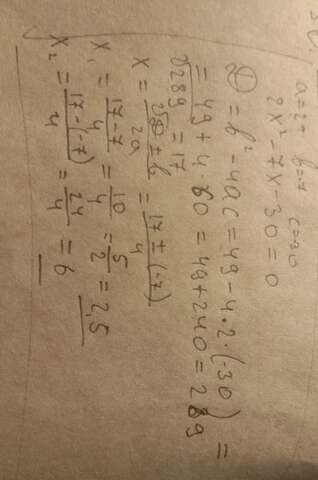 a=2 b=-7 c=-30
2x² - 7x - 30 = 0
D = b² - 4ac = 49 - 4 • 2 • (-30) =
= 49 + 4 · 60 = 49 + 240 = 289
√289 = 17
x = (√D ± b)/2a = (17 ± (-7))/4
x₁ = (17 - 7)/4 = 10/4 = 5/2 = 2,5
x₂ = (17 - (-7))/4 = 24/4 = 6